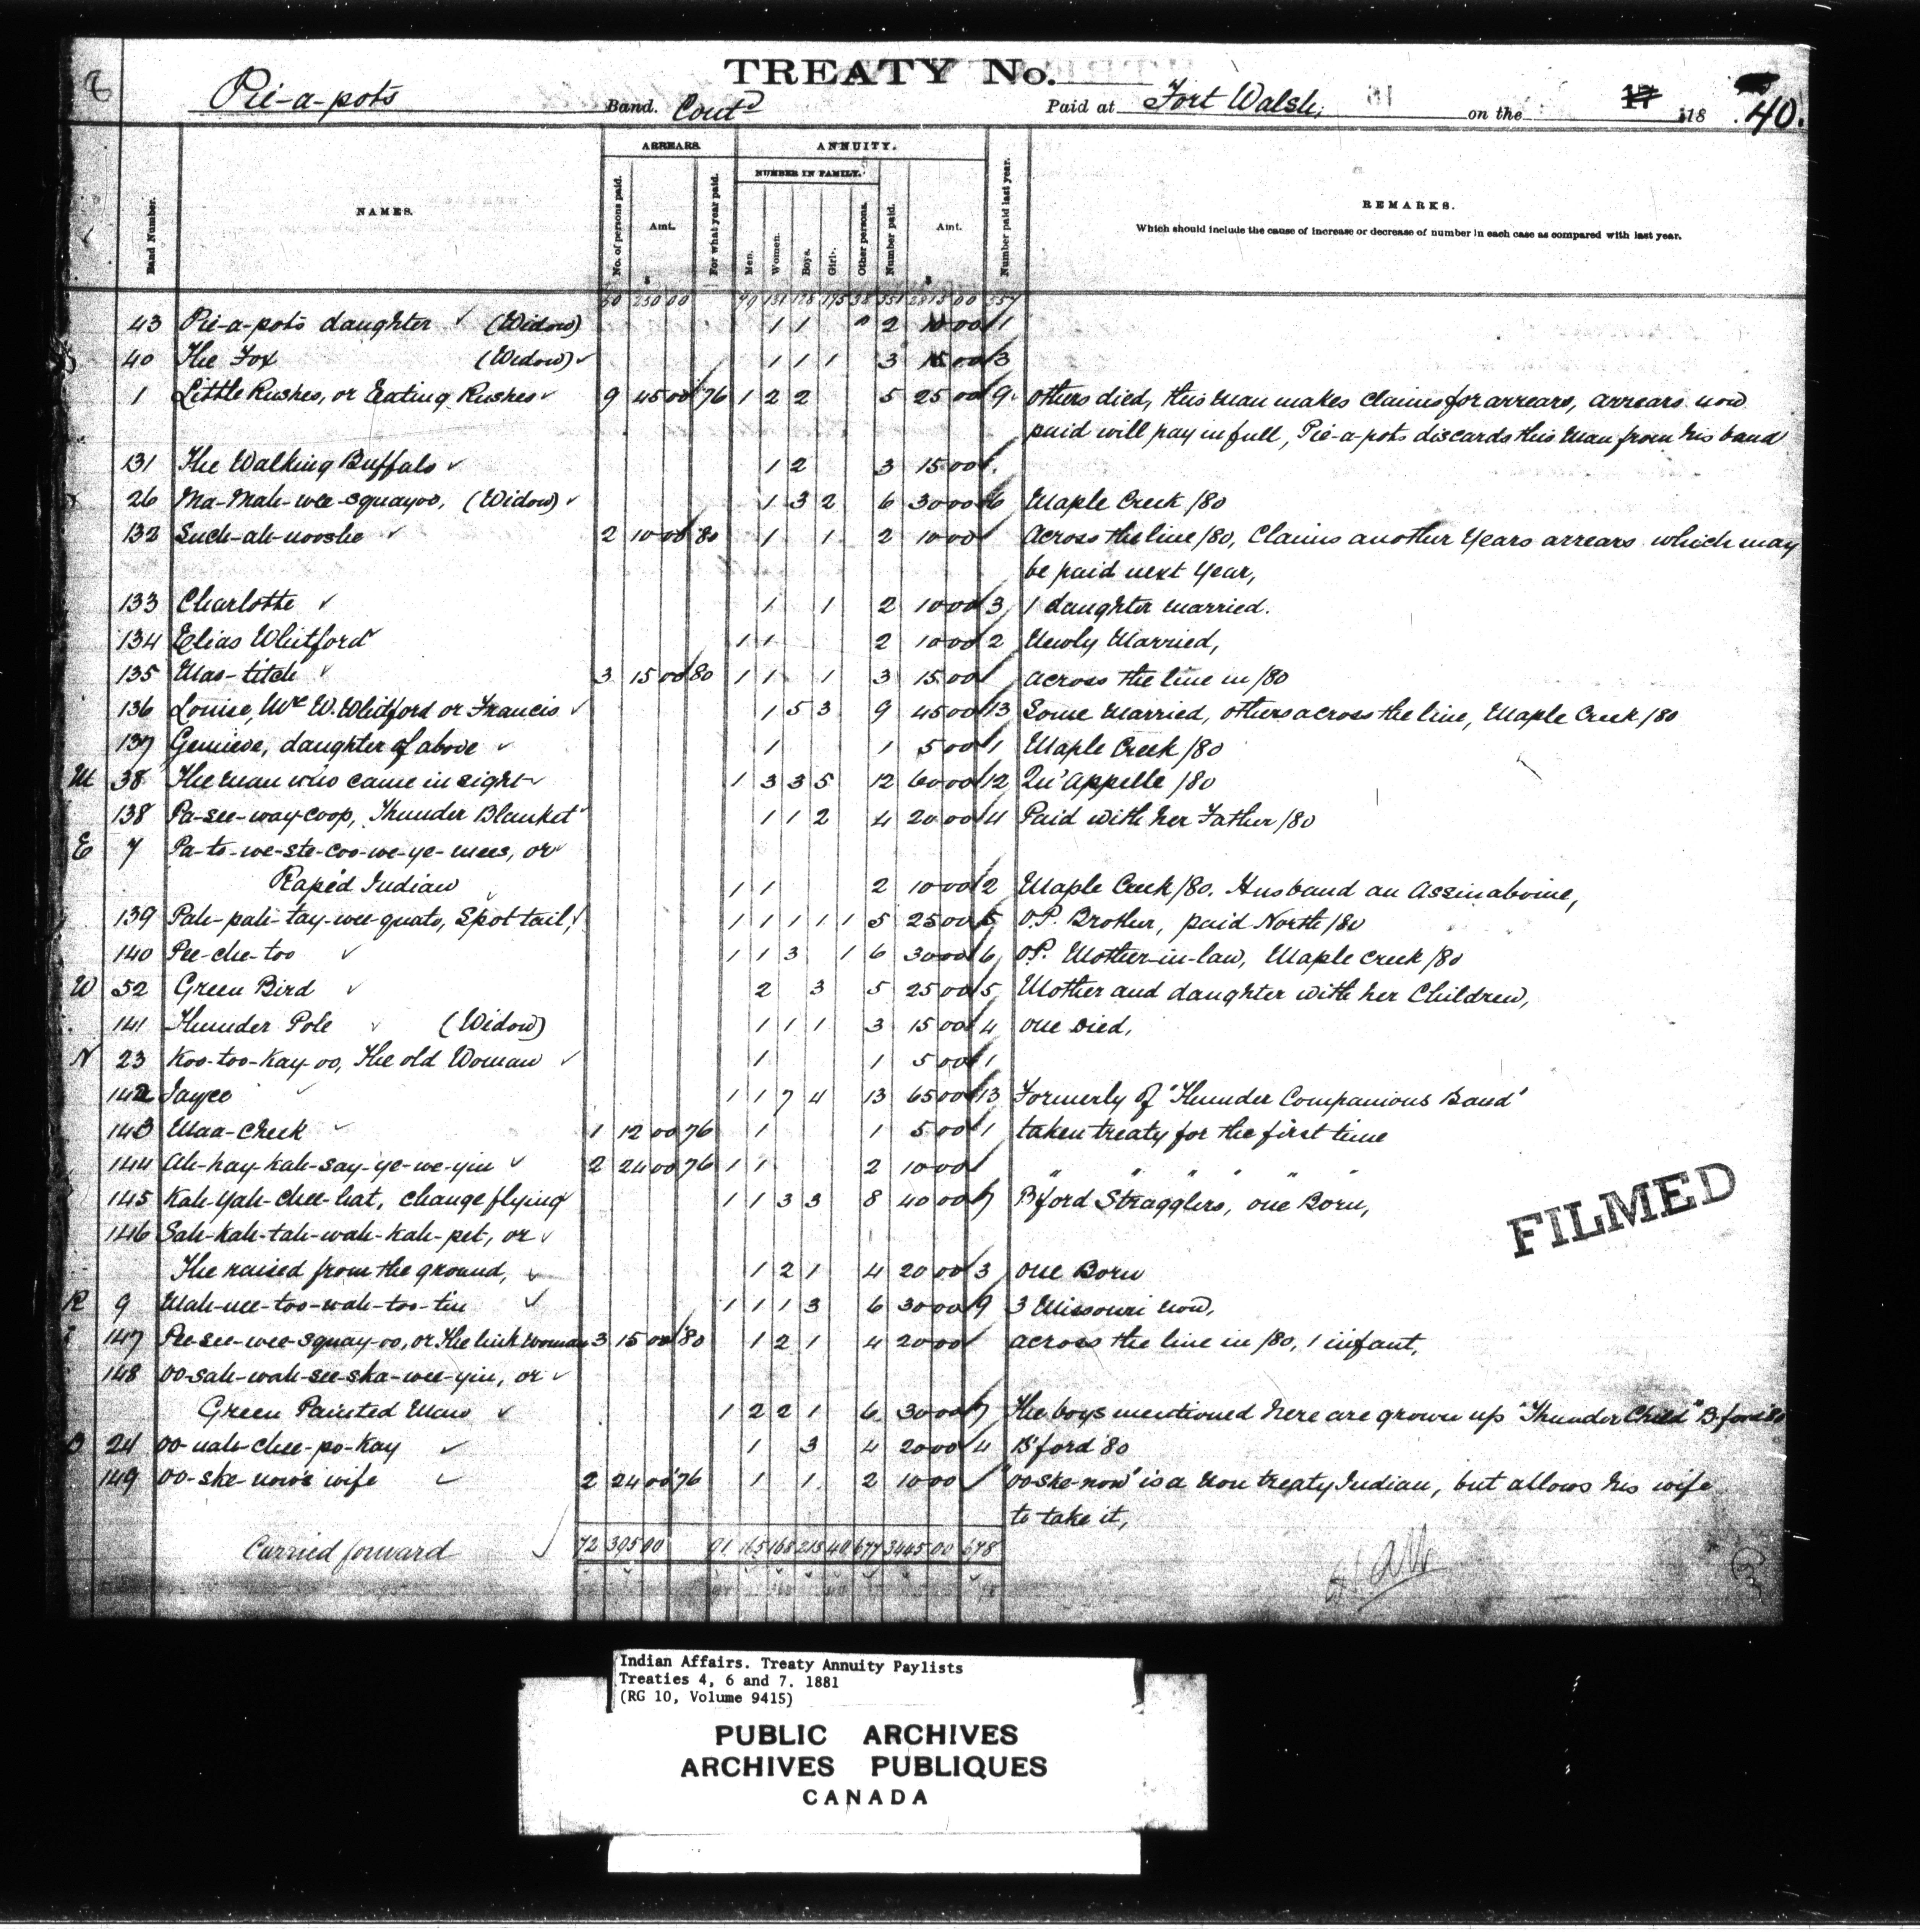 TREATY No.
Pie-a-pots Band. Contd Paid at Fort Walsh, on the 17 188 40.
ARREARS. ANNUITY.
NUMBER IN FAMILY.
Band Number. NAMES. No. of persons paid. Amt. $ For what year paid. Men. Women. Boys. Girls. Other persons. Number paid. Amt. $ Number paid last year. REMARKS.
Which should include the cause of increase or decrease of number in each case as compared with last year.
43 Pie-a-pots daughter (Widow) 1 1 2 10 00 1
40 The Fox (Widow) 1 1 1 3 15 00 3
1 Little Rushes, or Eating Rushes 9 45 00 76 1 2 2 5 25 00 9 others died, this man makes claims for arrears, arrears now
paid will pay in full, Pie-a-pots discards this man from his band
131 The Walking Buffalo 1 2 3 15 00
26 Ma-Mah-wee-squayoo, (Widow) 1 3 2 6 30 00 6 Maple Creek /80
132 Such-ah-nooshe 2 10 00 80 1 1 2 10 00 Across the line /80, Claims another Years arrears which may
be paid next Year,
133 Charlotte 1 1 2 10 00 3 1 daughter married.
134 Elias Whitford 1 1 2 10 00 2 Newly Married,
135 Mas-titch 3 15 00 80 1 1 1 3 15 00 across the line in /80
136 Louise, Mrs W. Whitford or Francis 1 5 3 9 45 00 13 Some Married, others across the line, Maple Creek /80
137 Genieve, daughter of above 1 1 5 00 1 Maple Creek /80
M 38 The man who came in sight 1 3 3 5 12 60 00 12 Qu'Appelle /80
138 Pa-see-way-coop, Thunder Blanket 1 1 2 4 20 00 4 Paid with her Father /80
E 7 Pa-to-we-ste-coo-we-ye-mees, or
Raped Indian 1 1 2 10 00 2 Maple Creek /80. Husband an Assinaboine,
139 Pah-pah-tay-wee-quato, Spot tail, 1 1 1 1 1 5 25 00 5 O.P. Brother, paid North /80
140 Pee-che-too 1 1 3 1 6 30 00 6 O.P. Mother-in-law, Maple Creek /80
W 52 Green Bird 2 3 5 25 00 5 Mother and daughter with her Children,
141 Thunder Pole (Widow) 1 1 1 3 15 00 4 one died,
N 23 Koo-too-kay-oo, The old Woman 1 1 5 00 1
142 Jaycee 1 1 7 4 13 65 00 13 Formerly of "Thunder Companions Band"
143 Maa-cheek 1 12 00 76 1 1 5 00 1 taken treaty for the first time
144 Ah-hay-kah-say-ye-we-yin 2 24 00 76 1 1 2 10 00 " " " " " "
145 Kah-yah-chee-hat, change flying 1 1 3 3 8 40 00 7 B'ford Stragglers, one Born,
146 Sah-kah-tah-wah-kah-pet, or
The raised from the ground, 1 2 1 4 20 00 3 one Born
R 9 Mah-nee-too-wah-too-tin 1 1 1 3 6 30 00 9 3 Missouri now,
147 Pee-see-wee-squay-oo, or The link Woman 3 15 00 80 1 2 1 4 20 00 across the line in /80, 1 infant,
148 oo-sah-wah-see-ska-wee-yin, or
Green Painted Man 1 2 2 1 6 30 00 7 The boys mentioned here are grown up "Thunder Child" B'ford 80
24 oo-nah-chee-po-kay 1 3 4 20 00 4 B'ford 80
149 oo-ske-now's wife 2 24 00 76 1 1 2 10 00 "oo-ske-now" is a Non treaty Indian, but allows his wife
to take it,
Carried forward 72 395 00 91 165 168 213 40 677 3445 00 678
FILMED
Indian Affairs. Treaty Annuity Paylists
Treaties 4, 6 and 7. 1881
(RG 10, Volume 9415)
PUBLIC ARCHIVES
ARCHIVES PUBLIQUES
CANADA